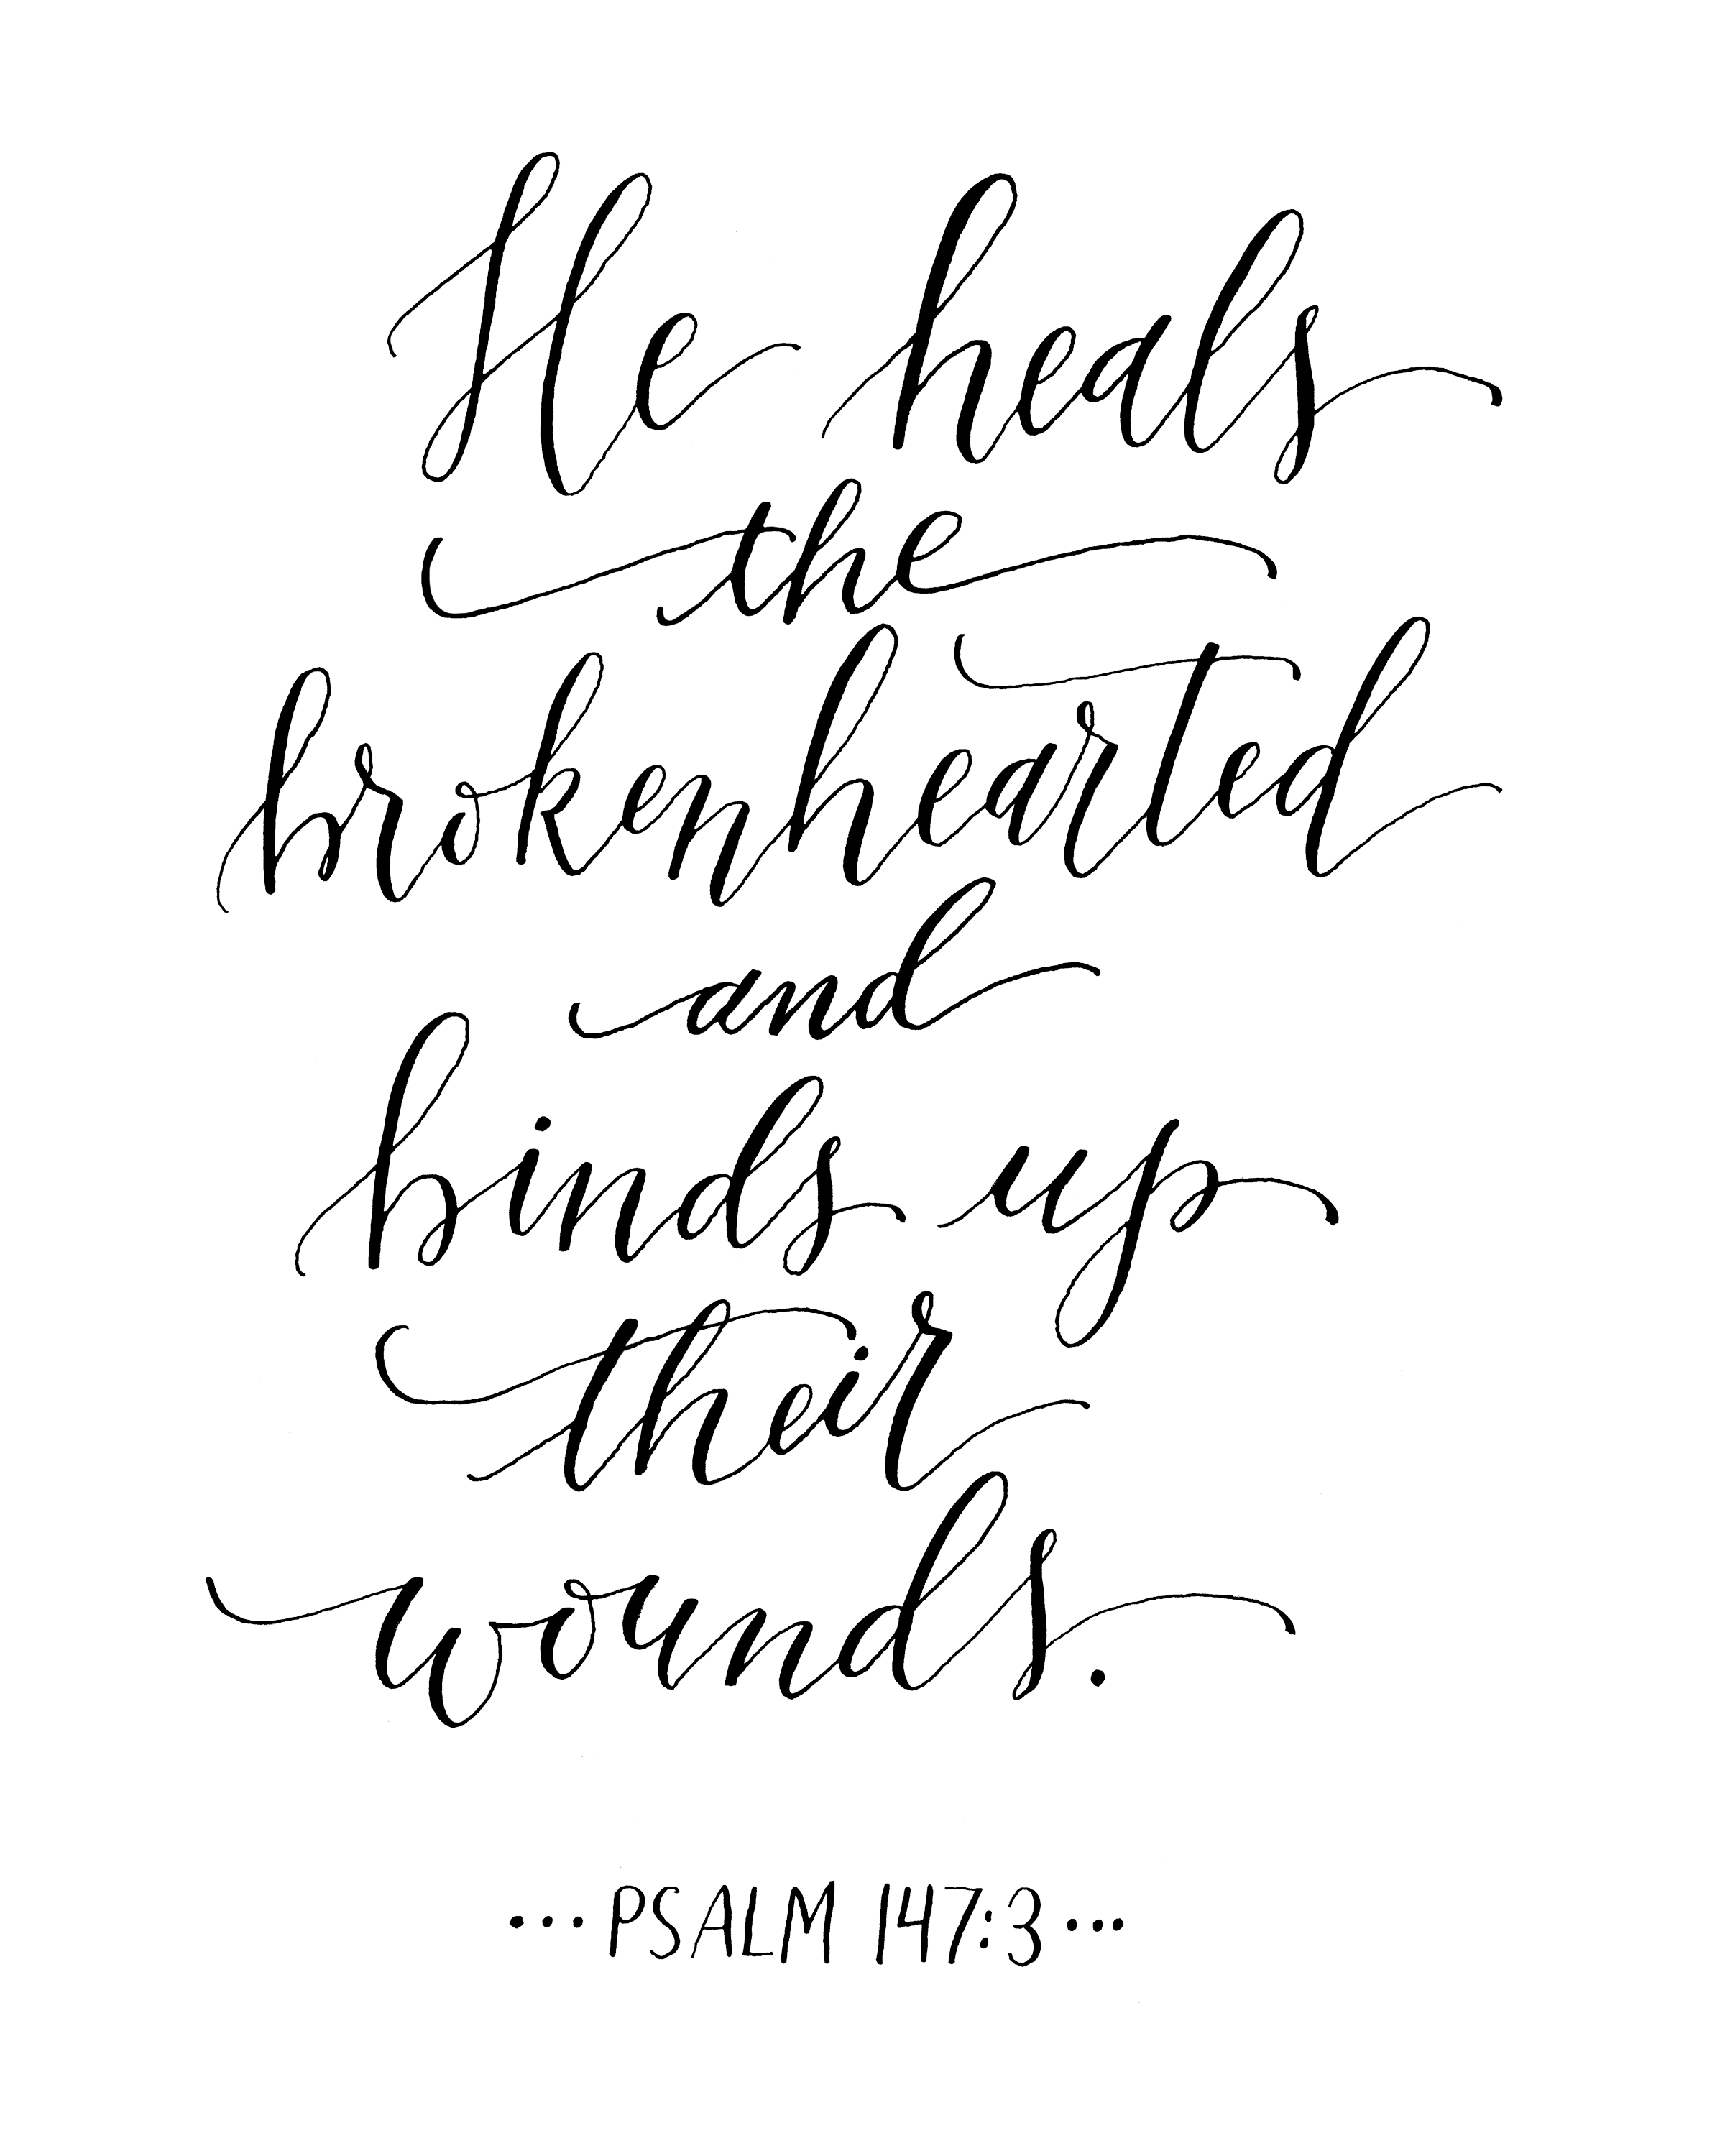 He heals
the
brokenhearted
and
binds up
their
wounds.
...PSALM 147:3...